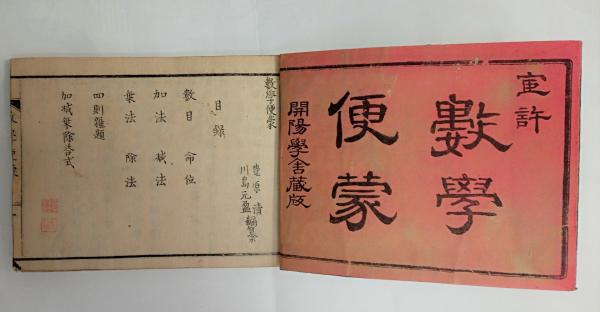 官許
數學
便蒙
開陽學舎藏版
數學便蒙
豊原清
川島元盈編纂
目録
數目 命位
加法 減法
乗法 除法
四則雜題
加減乗除答式